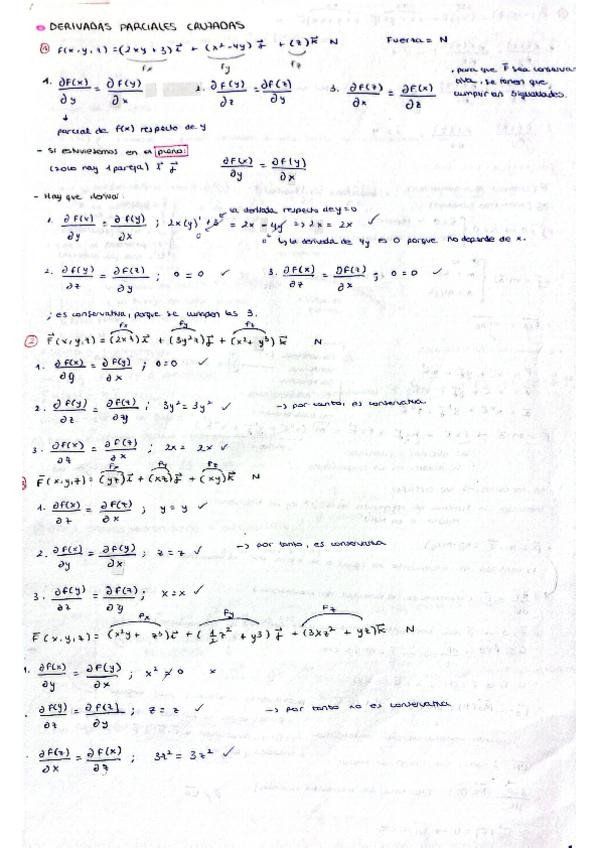 DERIVADAS PARCIALES CRUZADAS
① F(x,y,z) = (2xy + 3) i + (x² - 4y) j + (z) k N Fuerza = N
Fx Fy Fz
1. ∂F(x)/∂y = ∂F(y)/∂x 2. ∂F(y)/∂z = ∂F(z)/∂y 3. ∂F(z)/∂x = ∂F(x)/∂z
, para que F sea conservativa, se tienen que cumplir las igualdades.
↓
parcial de F(x) respecto de y
- Si estuviésemos en el plano:
(solo hay 1 pareja) i j ∂F(x)/∂y = ∂F(y)/∂x
- Hay que derivar:
la derivada respecto de y = 0
1. ∂F(x)/∂y = ∂F(y)/∂x ; 2x(y)' + 3 = 2x - 4y => 2x = 2x ✓
0 0 ↳ la derivada de 4y es 0 porque no depende de x.
2. ∂F(y)/∂z = ∂F(z)/∂y ; 0 = 0 ✓ 3. ∂F(x)/∂z = ∂F(z)/∂x ; 0 = 0 ✓
; es conservativa, porque se cumplen las 3.
Fx Fy Fz
② F(x,y,z) = (2xz) i + (3y²z) j + (x² + y³) k N
1. ∂F(x)/∂y = ∂F(y)/∂x ; 0 = 0 ✓
2. ∂F(y)/∂z = ∂F(z)/∂y ; 3y² = 3y² ✓ → por tanto, es conservativa
3. ∂F(x)/∂z = ∂F(z)/∂x ; 2x = 2x ✓
Fx Fy Fz
F(x,y,z) = (yz) i + (xz) j + (xy) k N
1. ∂F(x)/∂z = ∂F(z)/∂x ; y = y ✓
2. ∂F(x)/∂y = ∂F(y)/∂x ; z = z ✓ → por tanto, es conservativa
3. ∂F(y)/∂z = ∂F(z)/∂y ; x = x ✓
Fx Fy Fz
F(x,y,z) = (x²y + z³) i + (1/2 z² + y³) j + (3xz² + yz) k N
1. ∂F(x)/∂y = ∂F(y)/∂x ; x² ≠ 0 x
. ∂F(y)/∂z = ∂F(z)/∂y ; z = z ✓ → por tanto no es conservativa
. ∂F(z)/∂x = ∂F(x)/∂z ; 3z² = 3z² ✓